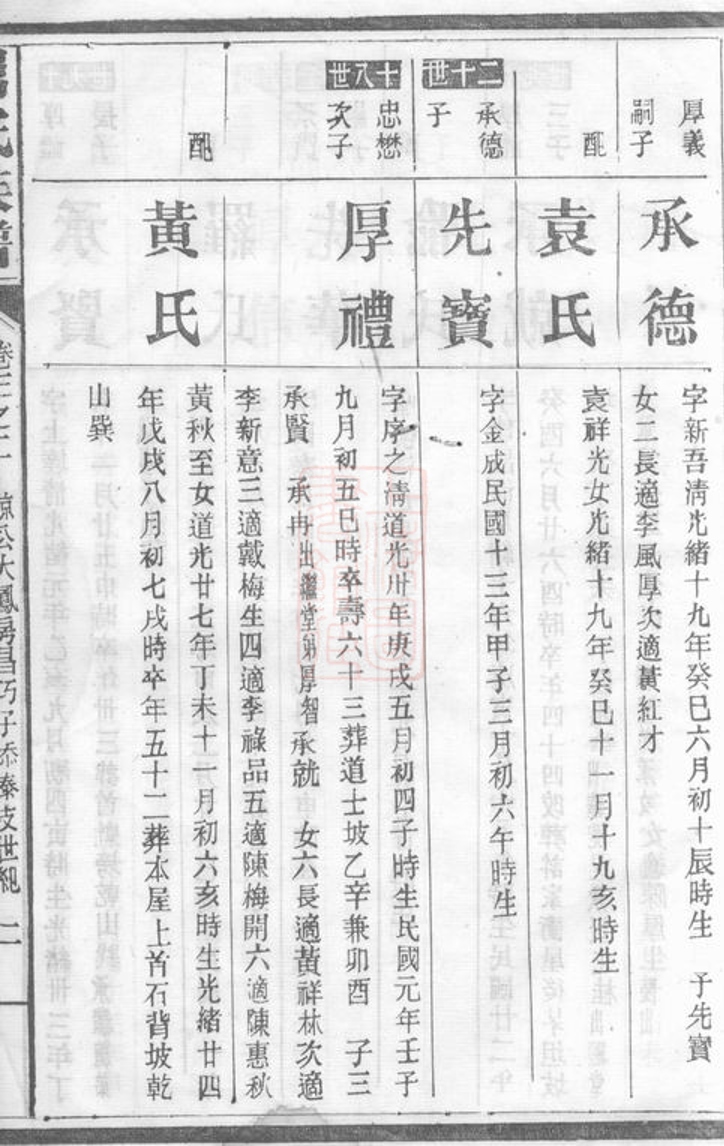 厚義
嗣子
承德
字新吾淸光緒十九年癸巳六月初十辰時生　子先寶
女二長適李風厚次適黃紅才
配
袁氏
袁祥光女光緒十九年癸巳十一月十九亥時生
二十世
承德
子
先寶
字金成民國十三年甲子三月初六午時生
十八世
忠懋
次子
厚禮
字序之淸道光卅年庚戌五月初四子時生民國元年壬子
九月初五巳時卒壽六十三葬道士坡乙辛兼卯酉　子三
承賢　承冉出繼堂弟厚智承就　女六長適黃祥林次適
李新意三適戴梅生四適李祿品五適陳梅開六適陳惠秋
配
黃氏
黃秋至女道光廿七年丁未十一月初六亥時生光緒廿四
年戊戌八月初七戌時卒年五十二葬本屋上首石背坡乾
山巽
氏族譜
公大鳳房昌巧子添臻支世紀　二